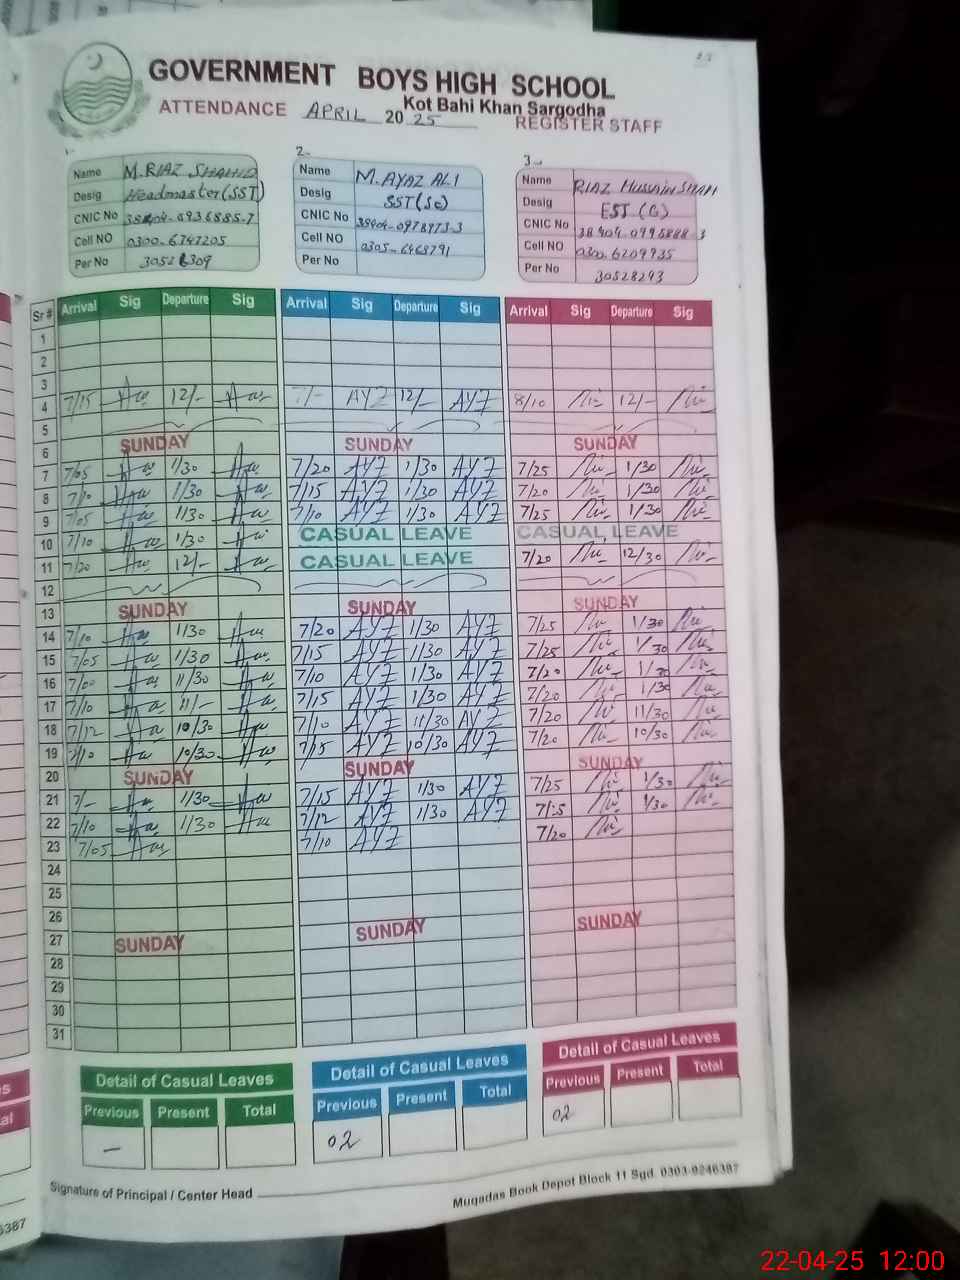 GOVERNMENT BOYS HIGH SCHOOL
Kot Bahi Khan Sargodha
ATTENDANCE APRIL 2025 REGISTER STAFF
1-
Name M.RIAZ SHAHID
Desig Headmaster(SST)
CNIC No
Cell NO 0300-6747205
Per No
2-
Name M.AYAZ ALI
Desig SST(Sc)
CNIC No
Cell NO
Per No
3-
Name RIAZ Hussain SHAH
Desig EST(G)
CNIC No
Cell NO 0300-6209935
Per No 30528293
Sr # Arrival Sig Departure Sig Arrival Sig Departure Sig Arrival Sig Departure Sig
1
2
3
4 7/15 12/- 7/- AYZ 12/- AYZ 8/10 12/-
5
6 SUNDAY SUNDAY SUNDAY
7 7/05 1/30 7/20 AYZ 1/30 AYZ 7/25 1/30
8 7/10 1/30 7/15 AYZ 1/30 AYZ 7/20 1/30
9 7/05 1/30 7/10 AYZ 1/30 AYZ 7/25 1/30
10 7/10 1/30 CASUAL LEAVE CASUAL LEAVE
11 7/20 12/- CASUAL LEAVE 7/20 12/30
12
13 SUNDAY SUNDAY SUNDAY
14 7/10 1/30 7/20 AYZ 1/30 AYZ 7/25 1/30
15 7/05 1/30 7/15 AYZ 1/30 AYZ 7/25 1/30
16 7/00 11/30 7/10 AYZ 1/30 AYZ 7/20 1/30
17 7/10 11/- 7/15 AYZ 1/30 AYZ 7/20 1/30
18 7/12 10/30 7/10 AYZ 11/30 AYZ 7/20 11/30
19 7/10 10/30 7/15 AYZ 10/30 AYZ 7/20 10/30
20 SUNDAY SUNDAY SUNDAY
21 7/- 1/30 7/15 AYZ 1/30 AYZ 7/25 1/30
22 7/10 1/30 7/12 AYZ 1/30 AYZ 1/30
23 7/05 7/10 AYZ 7/20
24
25
26
27 SUNDAY SUNDAY SUNDAY
28
29
30
31
Detail of Casual Leaves Detail of Casual Leaves Detail of Casual Leaves
Previous Present Total Previous Present Total Previous Present Total
— 02 02
Signature of Principal / Center Head
Muqadas Book Depot Block 11 Sgd. 0303-9246387
22-04-25 12:00